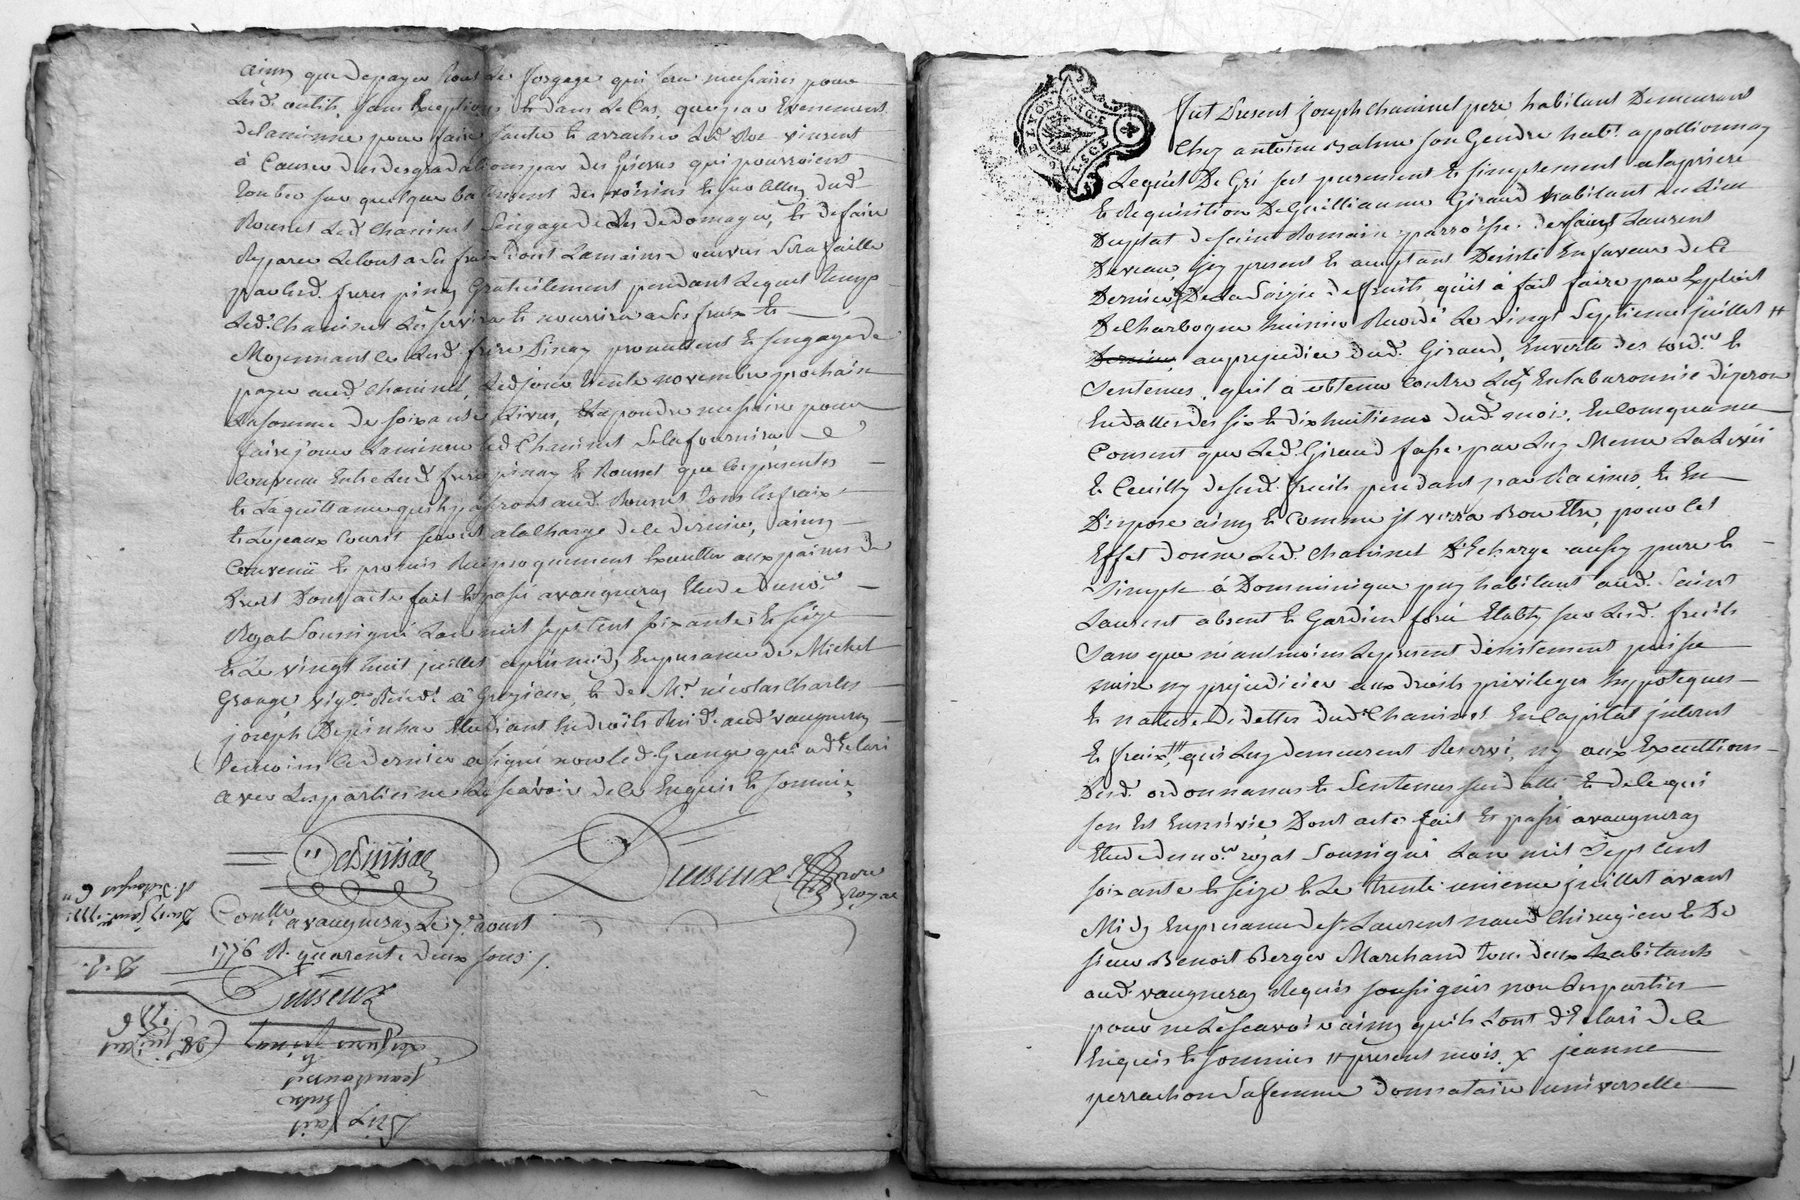 ainsy que de payer tout le forgage qui sera nessaire pour
Lesd. outils, sans exeption, et dans le Cas, que par Evenement
de la minne pour faire sauter et arracher Led. Roc vinsent
à Causer des desgradations par des pierres qui pourroient
tomber sur quelque batiment des voisins et sur Celluy dud.
Rousset Led. Chaninel s'engage de les dedomager, et de faire
Reparer le tout a ses frais dont la main d'oeuvre sera faitte
par lesd. freres pinay gratuitement pendant lequel temp
Led. Chaninel les servira et nourrira a ses fraix et
Moyennant ce Lesd. frere Pinay promettent et s'engage de
payer aud. Chaninel, Led jour trente novembre prochain
La somme de soixante Livres, et la poudre nessaire pour
faire jouer la minne led Chaninel se la fournira
Convenu Entre Lesd. freres pinay et Rousset que les presentes
et la quittance qu'ils passeront aud. Rousset tous les fraix
seront a la Charge de le dernier, ainsy
Convenu et promis Reciproquement Executter aux peines de
Droit Dont acte fait et passé a vaugneray Etude du no.re
Royal Soussigné L'an mil sept Cent soixante et seize
et le vingt huit juillet apres midy En presance de Michel
Grange, vig.on Resid.t à Grezieux, et de M.r nicolas Charles
joseph Despinhac Etudiant En droits Resid.t aud. vaugneray
temoins Ce dernier a signé non led. Grange qui a declaré
avec les parties ne le scavoir de ce Enquis et sommé
Despinhac
Duseux
no.re
royal
Con.lle a vaugneray Le 7.e aoust
1776 R. quarente deux sous /.
Duseux
28 juillet
1776
les freres pinay
et
jean Rousset
Prix fait
Fut Present joseph Chaninel pere habitant Demeurant
Chez antoine Balme son Gendre hab.t a pollionnay
Lequel De Gré fait purement et simplement a la priere
et Requisition De Guilliaume Giraud habitant au Lieu
Du plat de saint Romain parroisse de saint Laurent
De veau, jcy present et acceptant Desisté En faveur de ce
Dernier De la Saizie de fruits qu'il à fait faire par Exploit
De Charbogne huissier Recordé Le vingt septieme juillet #
Dernier, au prejudice dud. Giraud, En vertu des ord.ces et
Sentences, qu'il a obtenu Contre Luy En la baronnie d'yzeron
En datte des six et dix huitieme dud. mois, En Consequance
Consent que Led. Giraud fasse par Luy Meme La Levée
et Ceuillette desd. fruits pendant par Racines, et En
Dispose ainsy et Comme jl verra Bon Etre, pour Cet
Effet donne Led. Chaninel D'echarge aussy pure et
Simple à Domminique puy habitant aud. Saint
Laurent absent et Gardien forcé Etably sur Lesd. fruits
Sans que neantmoins Le present desistement puisse
nuire ny prejudicier aux droits privileges hypoteques
et nature De dettes dud. Chaninel En Capital interest
et fraix, qui Luy demeurent Reservé, ny aux Executtions
Desd. ordonnances et Sentences susdatté et de le qui
s'en Est Ensuivie, Dont acte fait Et passé a vaugneray
Etude du no.re royal Soussigné L'an mil Sept Cent
soixante et seize et Le trente unieme juillet avant
Midy En presance de s.r Laurent naud Chirugien et De
sieur Benoit Berger Marchand tous deux habitants
aud. vaugneray Requis soussignés non les parties
pour ne Le scavoir ainsy qu'ils L'ont d'eclaré de ce
Enquis et sommés # present mois. x jeanne
perrachon sa femme donnataire universelle